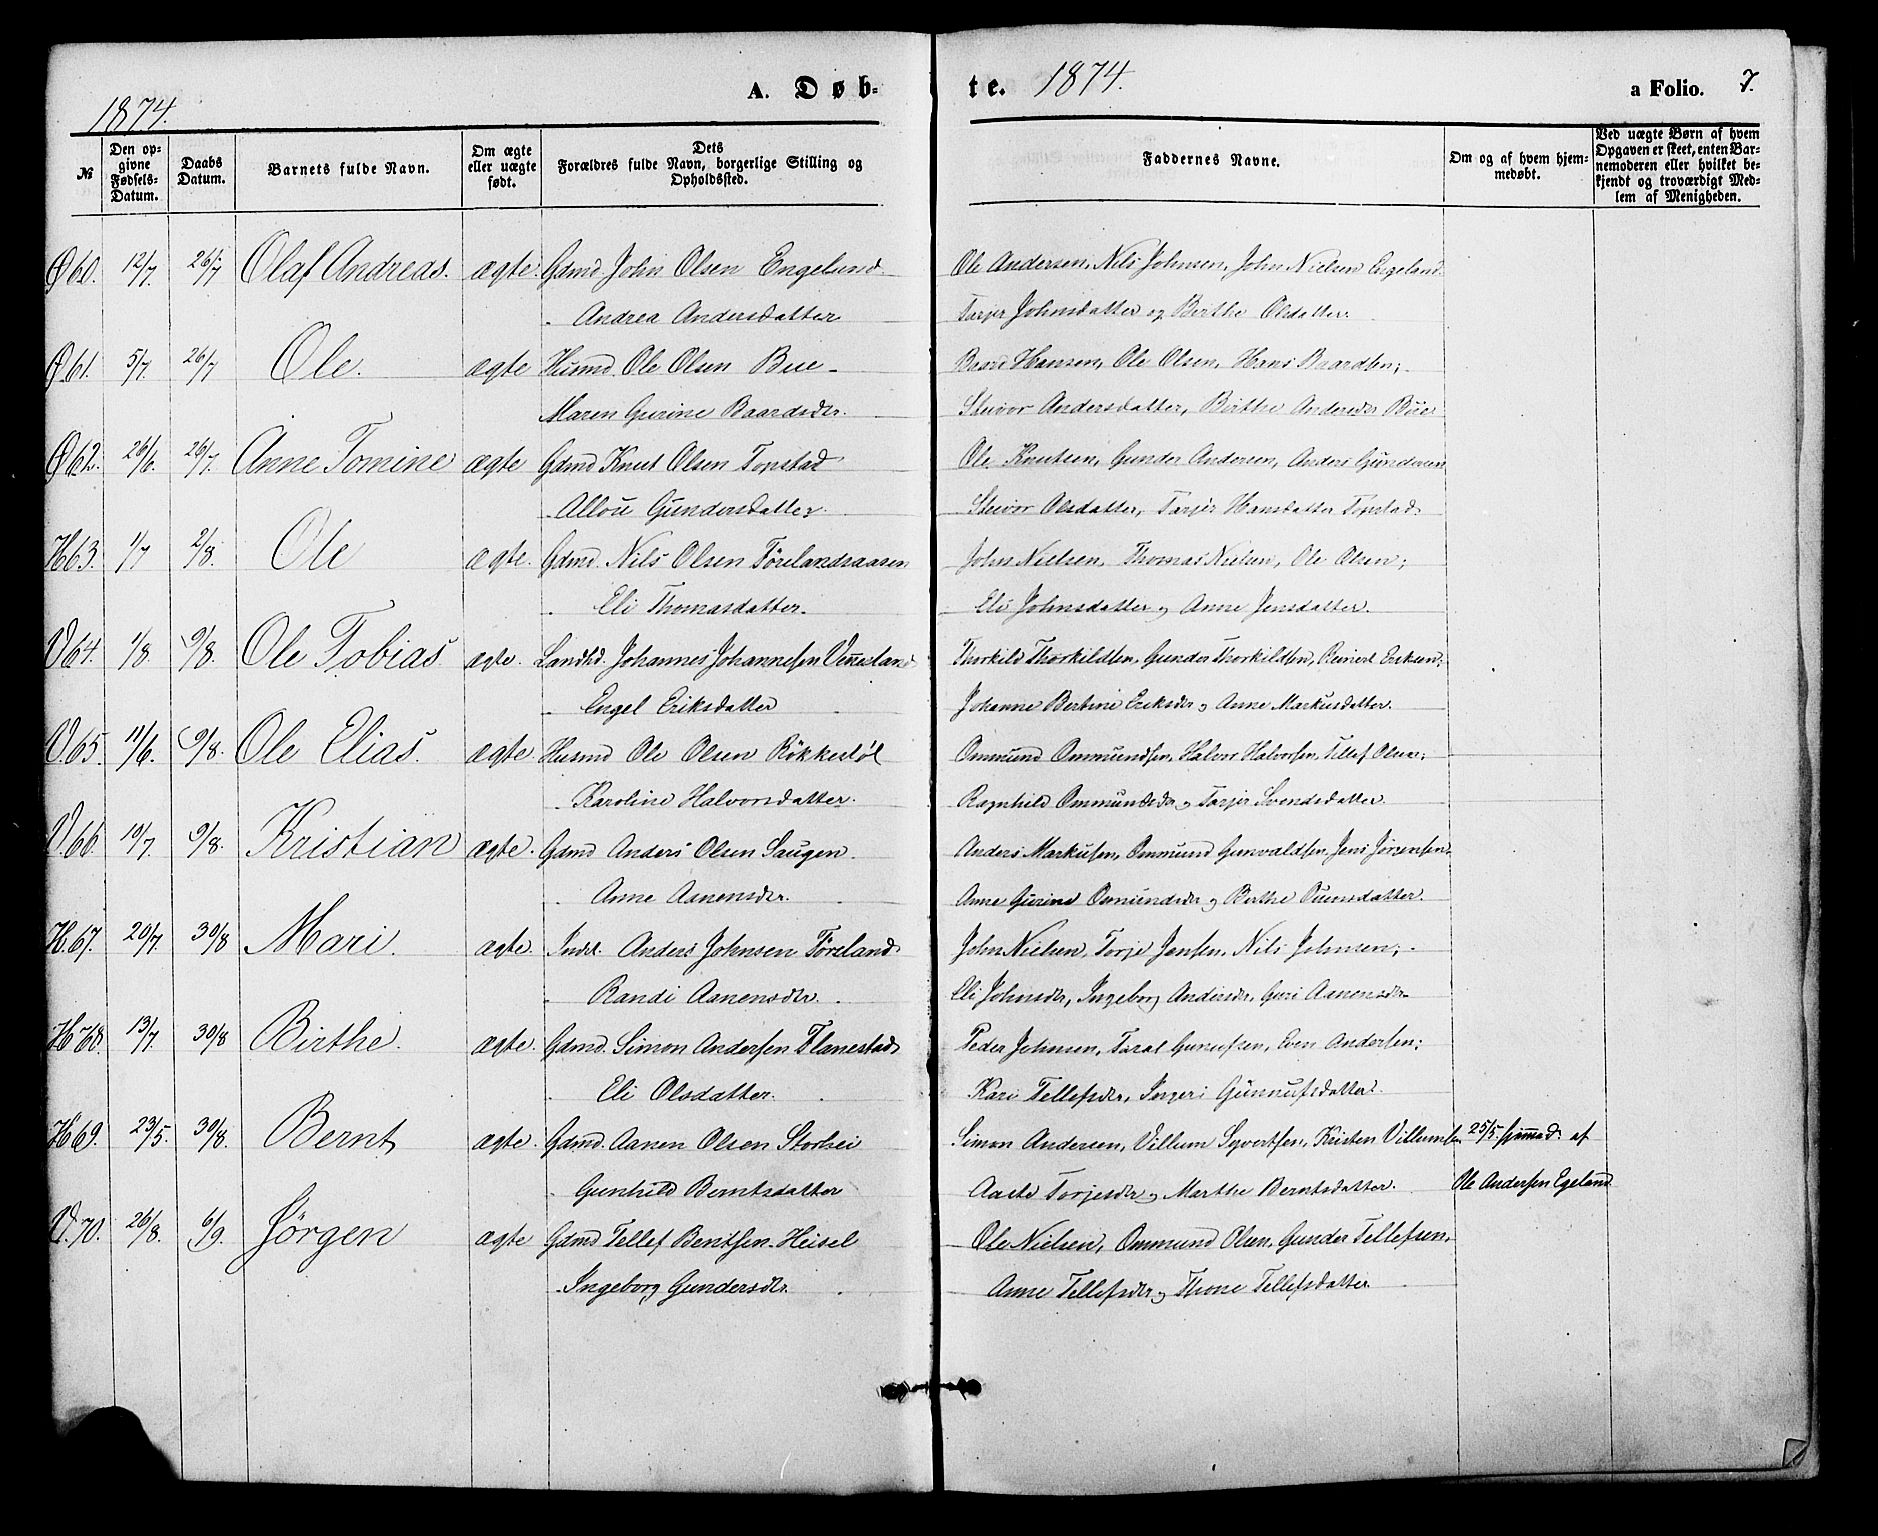 1874. A. Døb-
№ Den opgivne Fødsels-Datum. Daabs Datum. Barnets fulde Navn. Om ægte eller uægte født. Dets Forældres fulde Navn, borgerlige Stilling og Opholdssted.
Ø60. 12/7. 26/7 Olaf Andreas. ægte. Gdmd John Olsen Engelund.
Andrea Andersdatter
Ø61. 5/7. 26/7 Ole. ægte Husmd. Ole Olsen Bue
Maren Gurine Baardsdtr.
Ø62. 26/6. 26/7. Anne Tomine ægte Gdmd Knut Olsen Topstad
Gundersdatter.
H63. 1/7 2/8. Ole ægte. Gdmd. Nils Olsen Førelandsaasen
Eli Thomasdatter.
V64. 1/8. 9/8. Ole Tobias ægte. Landhd. Johannes Johannesen Vennesland
Engel Eriksdatter
V.65. 11/6. 9/8. Ole Elias. ægte. Husmd Ole Olsen Røkkestøl
Karoline Halvorsdatter.
V.66. 19/7. 9/8. Kristian ægte. Gdmd Anders Olsen Saugen.
Anne Aanensdtr.
H.67. 20/7. 30/8 Mari. ægte. Inds. Anders Johnsen Føreland
Randi Aanensdtr.
H 68. 13/7. 30/8 Birthe. ægte. Gdmd. Simon Andersen Flanestad
Eli Olsdatter.
H69. 23/5. 30/8. Bernt ægte. Gdmd. Aanen Olsen Storhei
Gunhild Berntsdatter
V.70. 26/8. 6/9. Jørgen ægte Gdmd Tellef Bentsen Heisel
Ingeborg Gundersdtr.
te. 1874. a Folio. 7.
Faddernes Navne. Om og af hvem hjemmedøbt. Ved uægte Børn af hvem Opgaven er skeet, enten Barnemoderen eller hvilket bekjendt og troværdigt Medlem af Menigheden.
Ole Andersen, Nils Johnsen, John Nielsen Engeland
Tarjer Johnsdatter og Birthe Olsdatter.
Baard Hansen, Ole Olsen, Hans Baardsen;
Steivor Andersdatter, Birthe Andersdtr Bue
Ole Knutsen, Gunder Andersen, Anders Gundersen
Steivor Olsdatter, Tarjer Hansdatter Topstad
John Nielsen, Thomas Nielsen, Ole Olsen;
Eli Johnsdatter og Anne Jensdatter.
Thorkild Thorkildsen, Gunder Thorkildsen, Reinert Eriksen;
Johanne Bertine Eriksdtr og Anne Markusdatter.
Ommund Ommundsen, Halvor Halvorsen, Tellef Olsen;
Ragnhild Ommundsdtr og Tarjer Svendsdatter.
Anders Markusen, Ommund Gunvaldsen, Jens Jørgensen
Anne Gurine Osmundsdtr og Berthe
John Nielsen, Torje Jensen, Nils Johnsen;
Eli Johnsdtr, Ingeborg Andersdtr, Guri Aanensdtr
Peder Johnsen, Taral Gunufsen, Even Andersen;
Kari Tellefsdtr, Ingeri Gunnufsdatter.
Simon Andersen, Villum Syvertsen, Kristen Villumsen 25/5 hjmmed. af
Aaste Torjesdtr og Marthe Berntsdatter. Ole Andersen Egeland
Ole Nielsen, Ommund Olsen, Gunder Tellefsen,
Anne Tellefsdtr og Thone Tellefsdatter.